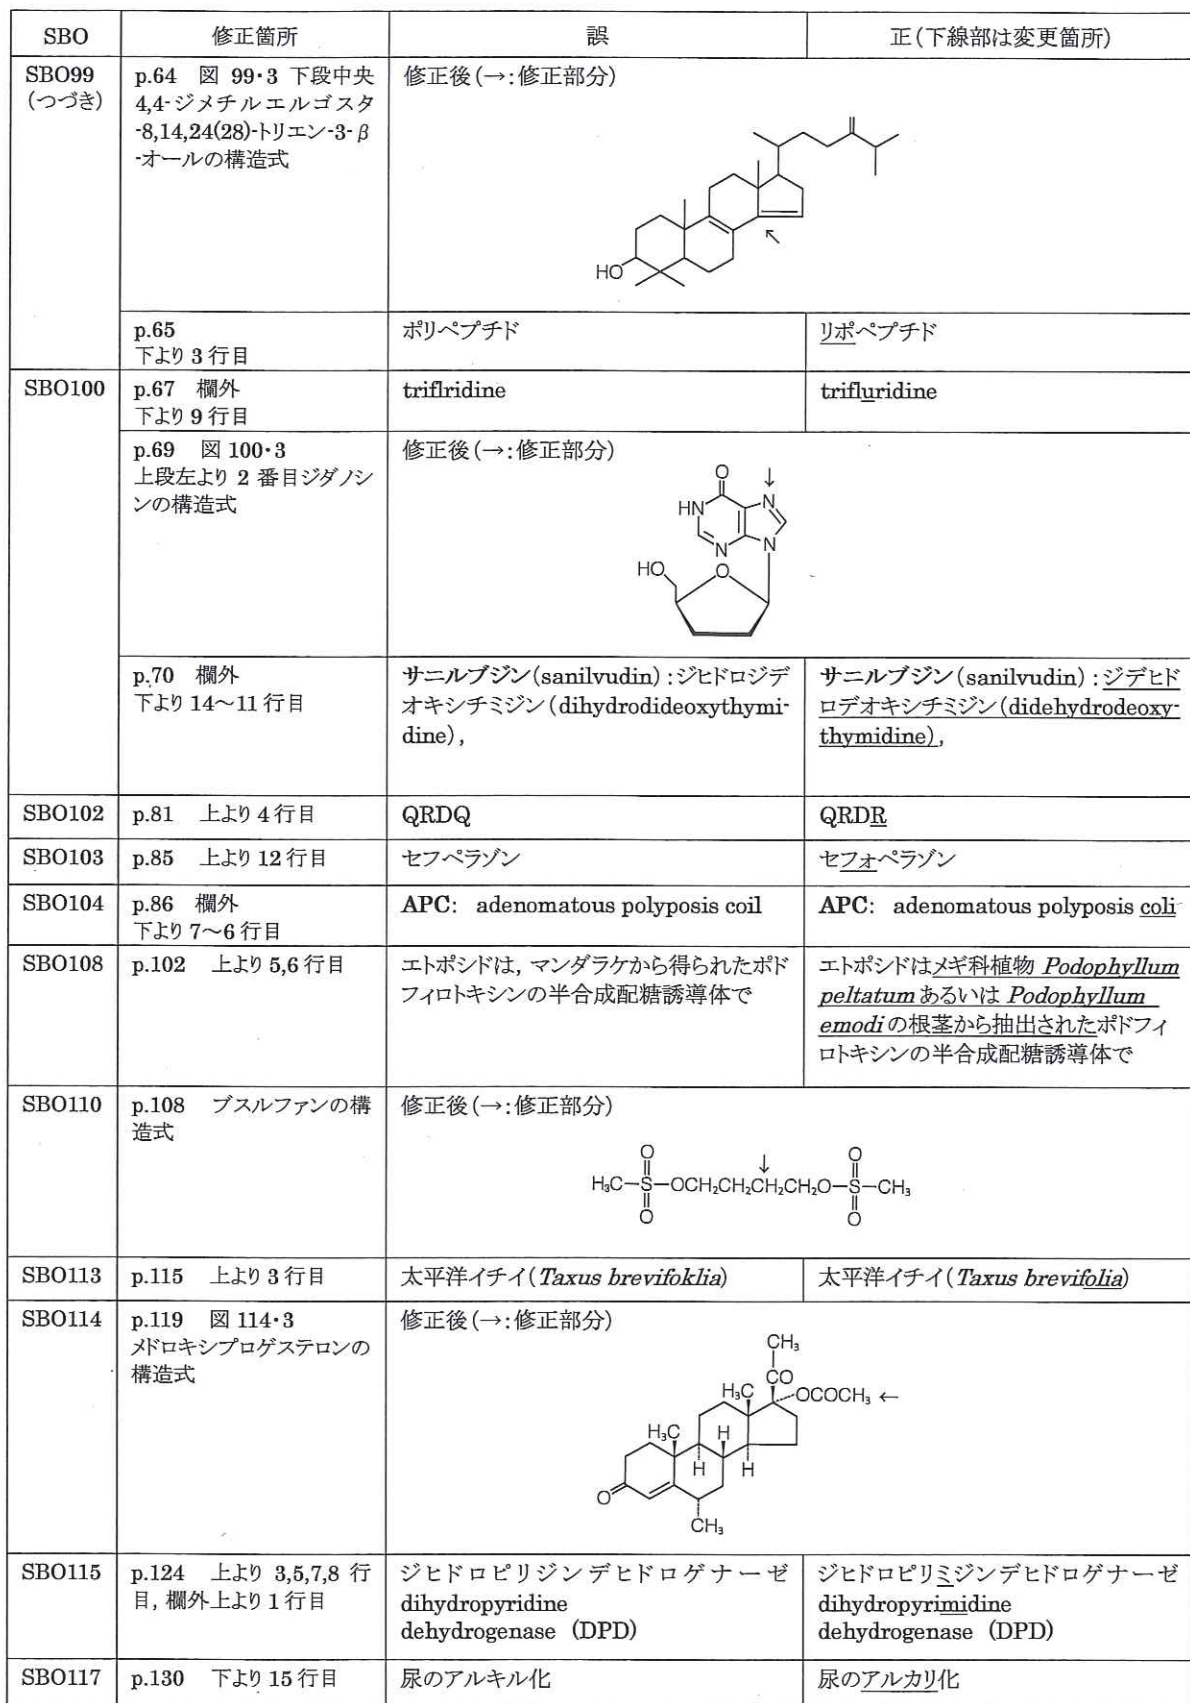 SBO 修正箇所 誤 正(下線部は変更箇所)
SBO99
(つづき)
p.64 図 99・3 下段中央
4,4-ジメチルエルゴスタ
-8,14,24(28)-トリエン-3-β
-オールの構造式
修正後(→:修正部分)
HO
p.65
下より 3 行目
ポリペプチド
リポペプチド
SBO100
p.67 欄外
下より 9 行目
triflridine
trifluridine
p.69 図 100・3
上段左より 2 番目ジダノシ
ンの構造式
修正後(→:修正部分)
O ↓
HN N
N N
HO O
p.70 欄外
下より 14~11 行目
サニルブジン(sanilvudin):ジヒドロジデ
オキシチミジン(dihydrodideoxythymi-
dine),
サニルブジン(sanilvudin):ジデヒド
ロデオキシチミジン(didehydrodeoxy-
thymidine),
SBO102
p.81 上より 4 行目
QRDQ
QRDR
SBO103
p.85 上より 12 行目
セフペラゾン
セフォペラゾン
SBO104
p.86 欄外
下より 7~6 行目
APC: adenomatous polyposis coil
APC: adenomatous polyposis coli
SBO108
p.102 上より 5,6 行目
エトポシドは,マンダラケから得られたポド
フィロトキシンの半合成配糖誘導体で
エトポシドはメギ科植物 Podophyllum
peltatum あるいは Podophyllum
emodi の根茎から抽出されたポドフィ
ロトキシンの半合成配糖誘導体で
SBO110
p.108 ブスルファンの構
造式
修正後(→:修正部分)
O ↓ O
H₃C-S-OCH₂CH₂CH₂CH₂O-S-CH₃
O O
SBO113
p.115 上より 3 行目
太平洋イチイ(Taxus brevifoklia)
太平洋イチイ(Taxus brevifolia)
SBO114
p.119 図 114・3
メドロキシプロゲステロンの
構造式
修正後(→:修正部分)
CH₃
CO
H₃C OCOCH₃ ←
H₃C H
H H
O
CH₃
SBO115
p.124 上より 3,5,7,8 行
目,欄外上より 1 行目
ジヒドロピリジンデヒドロゲナーゼ
dihydropyridine
dehydrogenase (DPD)
ジヒドロピリミジンデヒドロゲナーゼ
dihydropyrimidine
dehydrogenase (DPD)
SBO117
p.130 下より 15 行目
尿のアルキル化
尿のアルカリ化